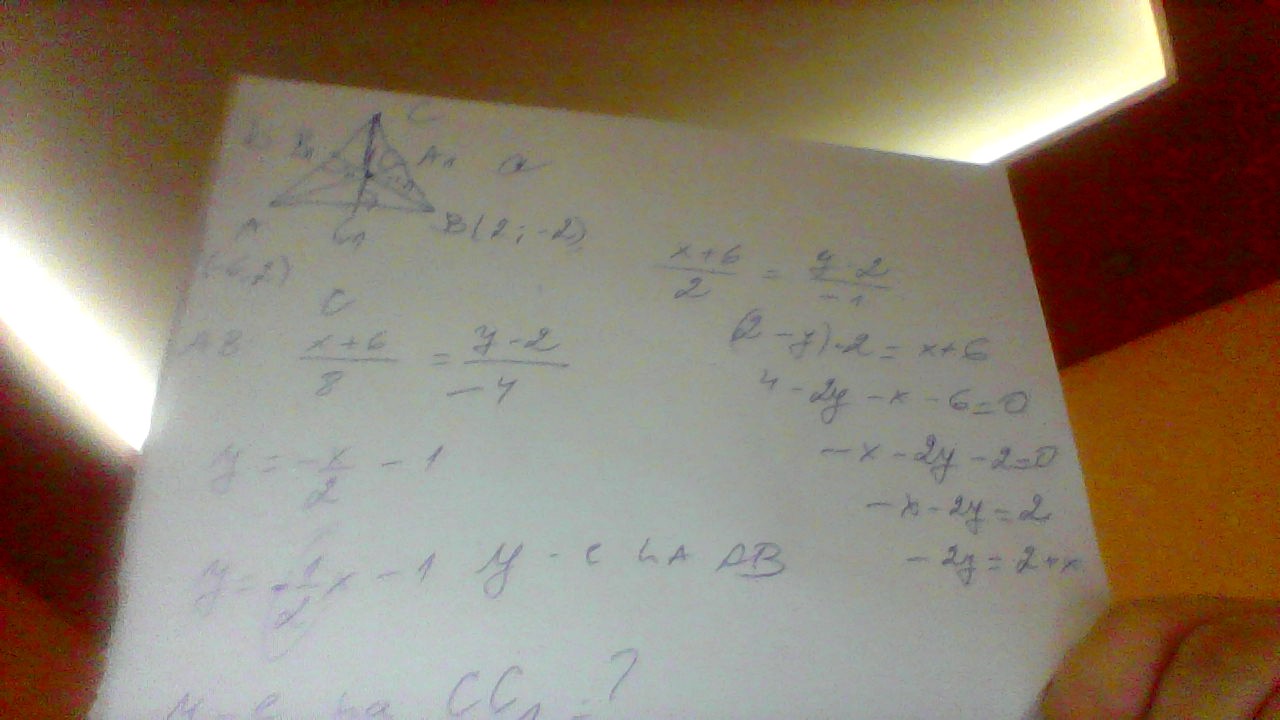 C
B₁ A₁ a
A C₁ B(2; -2)
(-6,2)
C
AB x+6/8 = y-2/-4
y = -x/2 - 1
y = -1/2x - 1 y - e на AB
y - e на CC₁ = ?
x+6/2 = y-2/-1
(2-y)·2 = x+6
4-2y-x-6=0
-x-2y-2=0
-x-2y=2
-2y=2+x